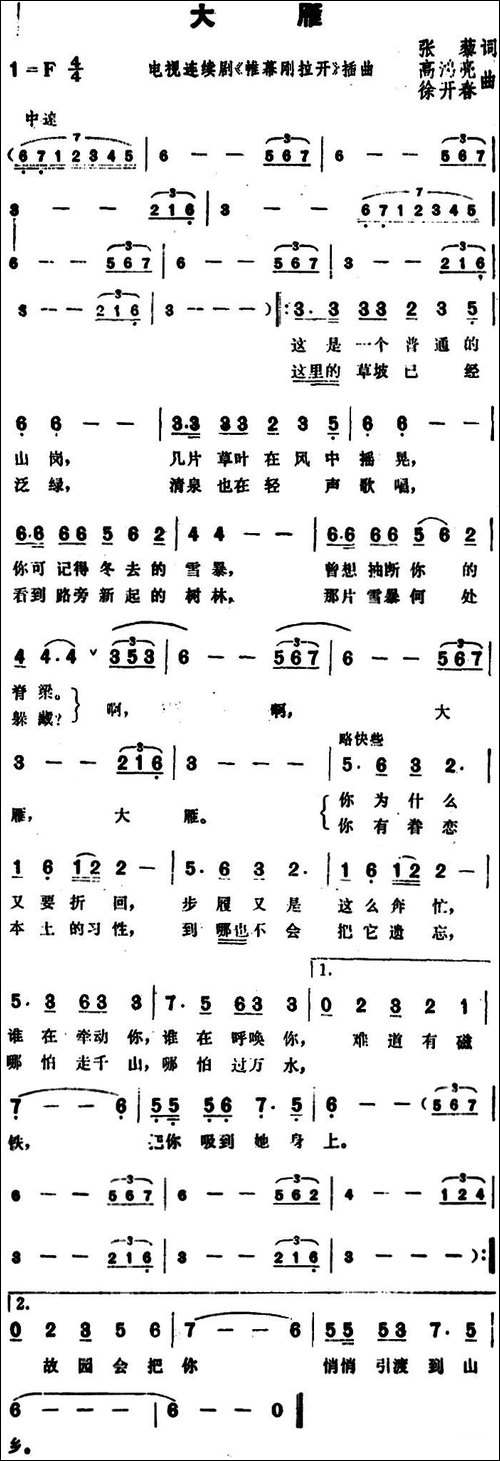 大 雁
张 藜 词
1=F 4/4 电视连续剧《帷幕刚拉开》插曲 高鸿亮 曲
徐开春
中速
7 3 3
(6712345 | 6 - - 567 | 6 - - 567 |
3 7
3 - - 216 | 3 - - 6712345 |
3 3 3
6 - - 567 | 6 - - 567 | 3 - - 216 |
3
3 - - 216 | 3 - - - ) ‖: 3. 3 33 2 3 5 |
这 是 一个 普 通 的
这里的 草坡 已 经
6 6 - - | 3.3 33 2 3 5 | 6 6 - - |
山 岗, 几片 草叶 在 风 中 摇 晃,
泛 绿, 清泉 也在 轻 声 歌 唱,
6.6 66 5 6 2 | 4 4 - - | 6.6 66 5 6 2 |
你可 记得 冬 去 的 雪 暴, 曾想 抽断 你 的
看到 路旁 新 起 的 树 林, 那片 雪暴 何 处
4 4.4 ∨ 353 | 6 - - 567 | 6 - - 567 |
脊 梁。 啊, 啊, 大
躲 藏?
3 - - 216 | 3 - - - | 5. 6 3 2. |
略快些
雁, 大 雁。 你 为 什 么
你 有 眷 恋
1 6 12 2 - | 5. 6 3 2. | 1 6 12 2 - |
又 要 折 回, 步 履 又 是 这 么 奔 忙,
本 土 的 习 性, 到 哪也 不 会 把 它 遗 忘,
1.
5. 3 63 3 | 7. 5 63 3 | 0 2 3 2 1 |
谁 在 牵动 你, 谁 在 呼唤 你, 难 道 有 磁
哪 怕 走千 山, 哪 怕 过万 水,
7 - - 6 | 55 56 7. 5 | 6 - - (567 |
铁, 把你 吸到 她 身 上。
6 - - 567 | 6 - - 562 | 4 - - 124 |
3 - - 216 | 3 - - 216 | 3 - - - ) :‖
2.
0 2 3 5 6 | 7 - - 6 | 55 53 7. 5 |
故 园 会 把 你 悄悄 引渡 到 山
6 - - - | 6 - - 0 ‖
乡。